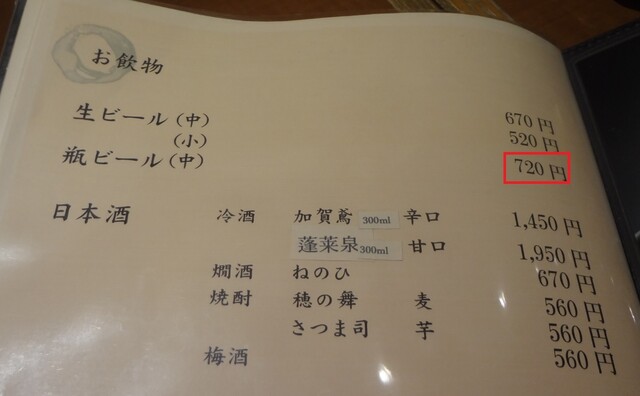 お飲物
生ビール（中） 670円
（小） 520円
瓶ビール（中） 720円
日本酒 冷酒 加賀鳶 300ml 辛口 1,450円
蓬莱泉 300ml 甘口 1,950円
燗酒 ねのひ 670円
焼酎 穂の舞 麦 560円
さつま司 芋 560円
梅酒 560円